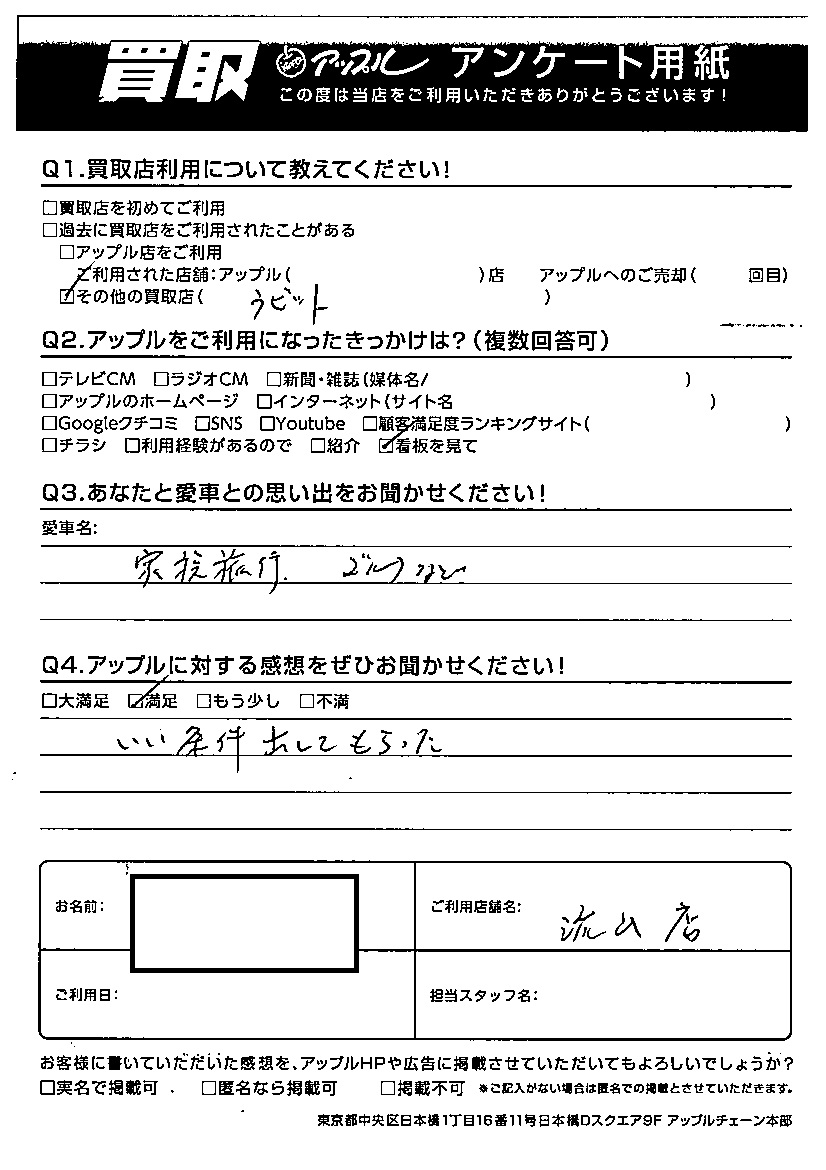 買取 アップル アンケート用紙
この度は当店をご利用いただきありがとうございます!
Q1.買取店利用について教えてください!
□買取店を初めてご利用
□過去に買取店をご利用されたことがある
□アップル店をご利用
ご利用された店舗:アップル( )店 アップルへのご売却( 回目)
☑その他の買取店( ラビット )
Q2.アップルをご利用になったきっかけは?(複数回答可)
□テレビCM □ラジオCM □新聞・雑誌(媒体名/ )
□アップルのホームページ □インターネット(サイト名 )
□Googleクチコミ □SNS □Youtube □顧客満足度ランキングサイト( )
□チラシ □利用経験があるので □紹介 ☑看板を見て
Q3.あなたと愛車との思い出をお聞かせください!
愛車名:
家族旅行. ゴルフなど
Q4.アップルに対する感想をぜひお聞かせください!
□大満足 ☑満足 □もう少し □不満
いい条件出してもらった
お名前:
ご利用店舗名: 流山店
ご利用日:
担当スタッフ名:
お客様に書いていただいた感想を、アップルHPや広告に掲載させていただいてもよろしいでしょうか?
□実名で掲載可 □匿名なら掲載可 □掲載不可 ※ご記入がない場合は匿名での掲載とさせていただきます。
東京都中央区日本橋1丁目16番11号日本橋Dスクエア9F アップルチェーン本部